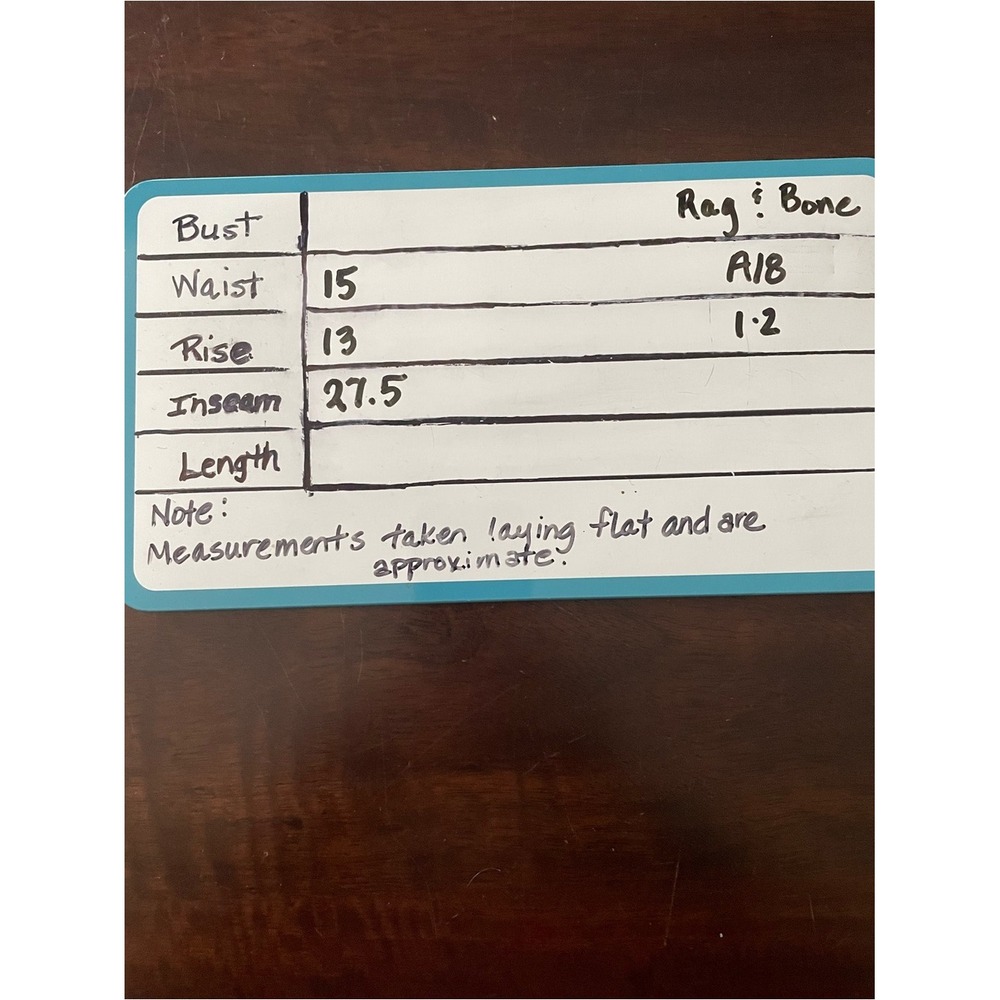 Bust Rag & Bone
Waist 15 A18
Rise 13 1.2
Inseam 27.5
Length
Note:
Measurements taken laying flat and are
approximate.